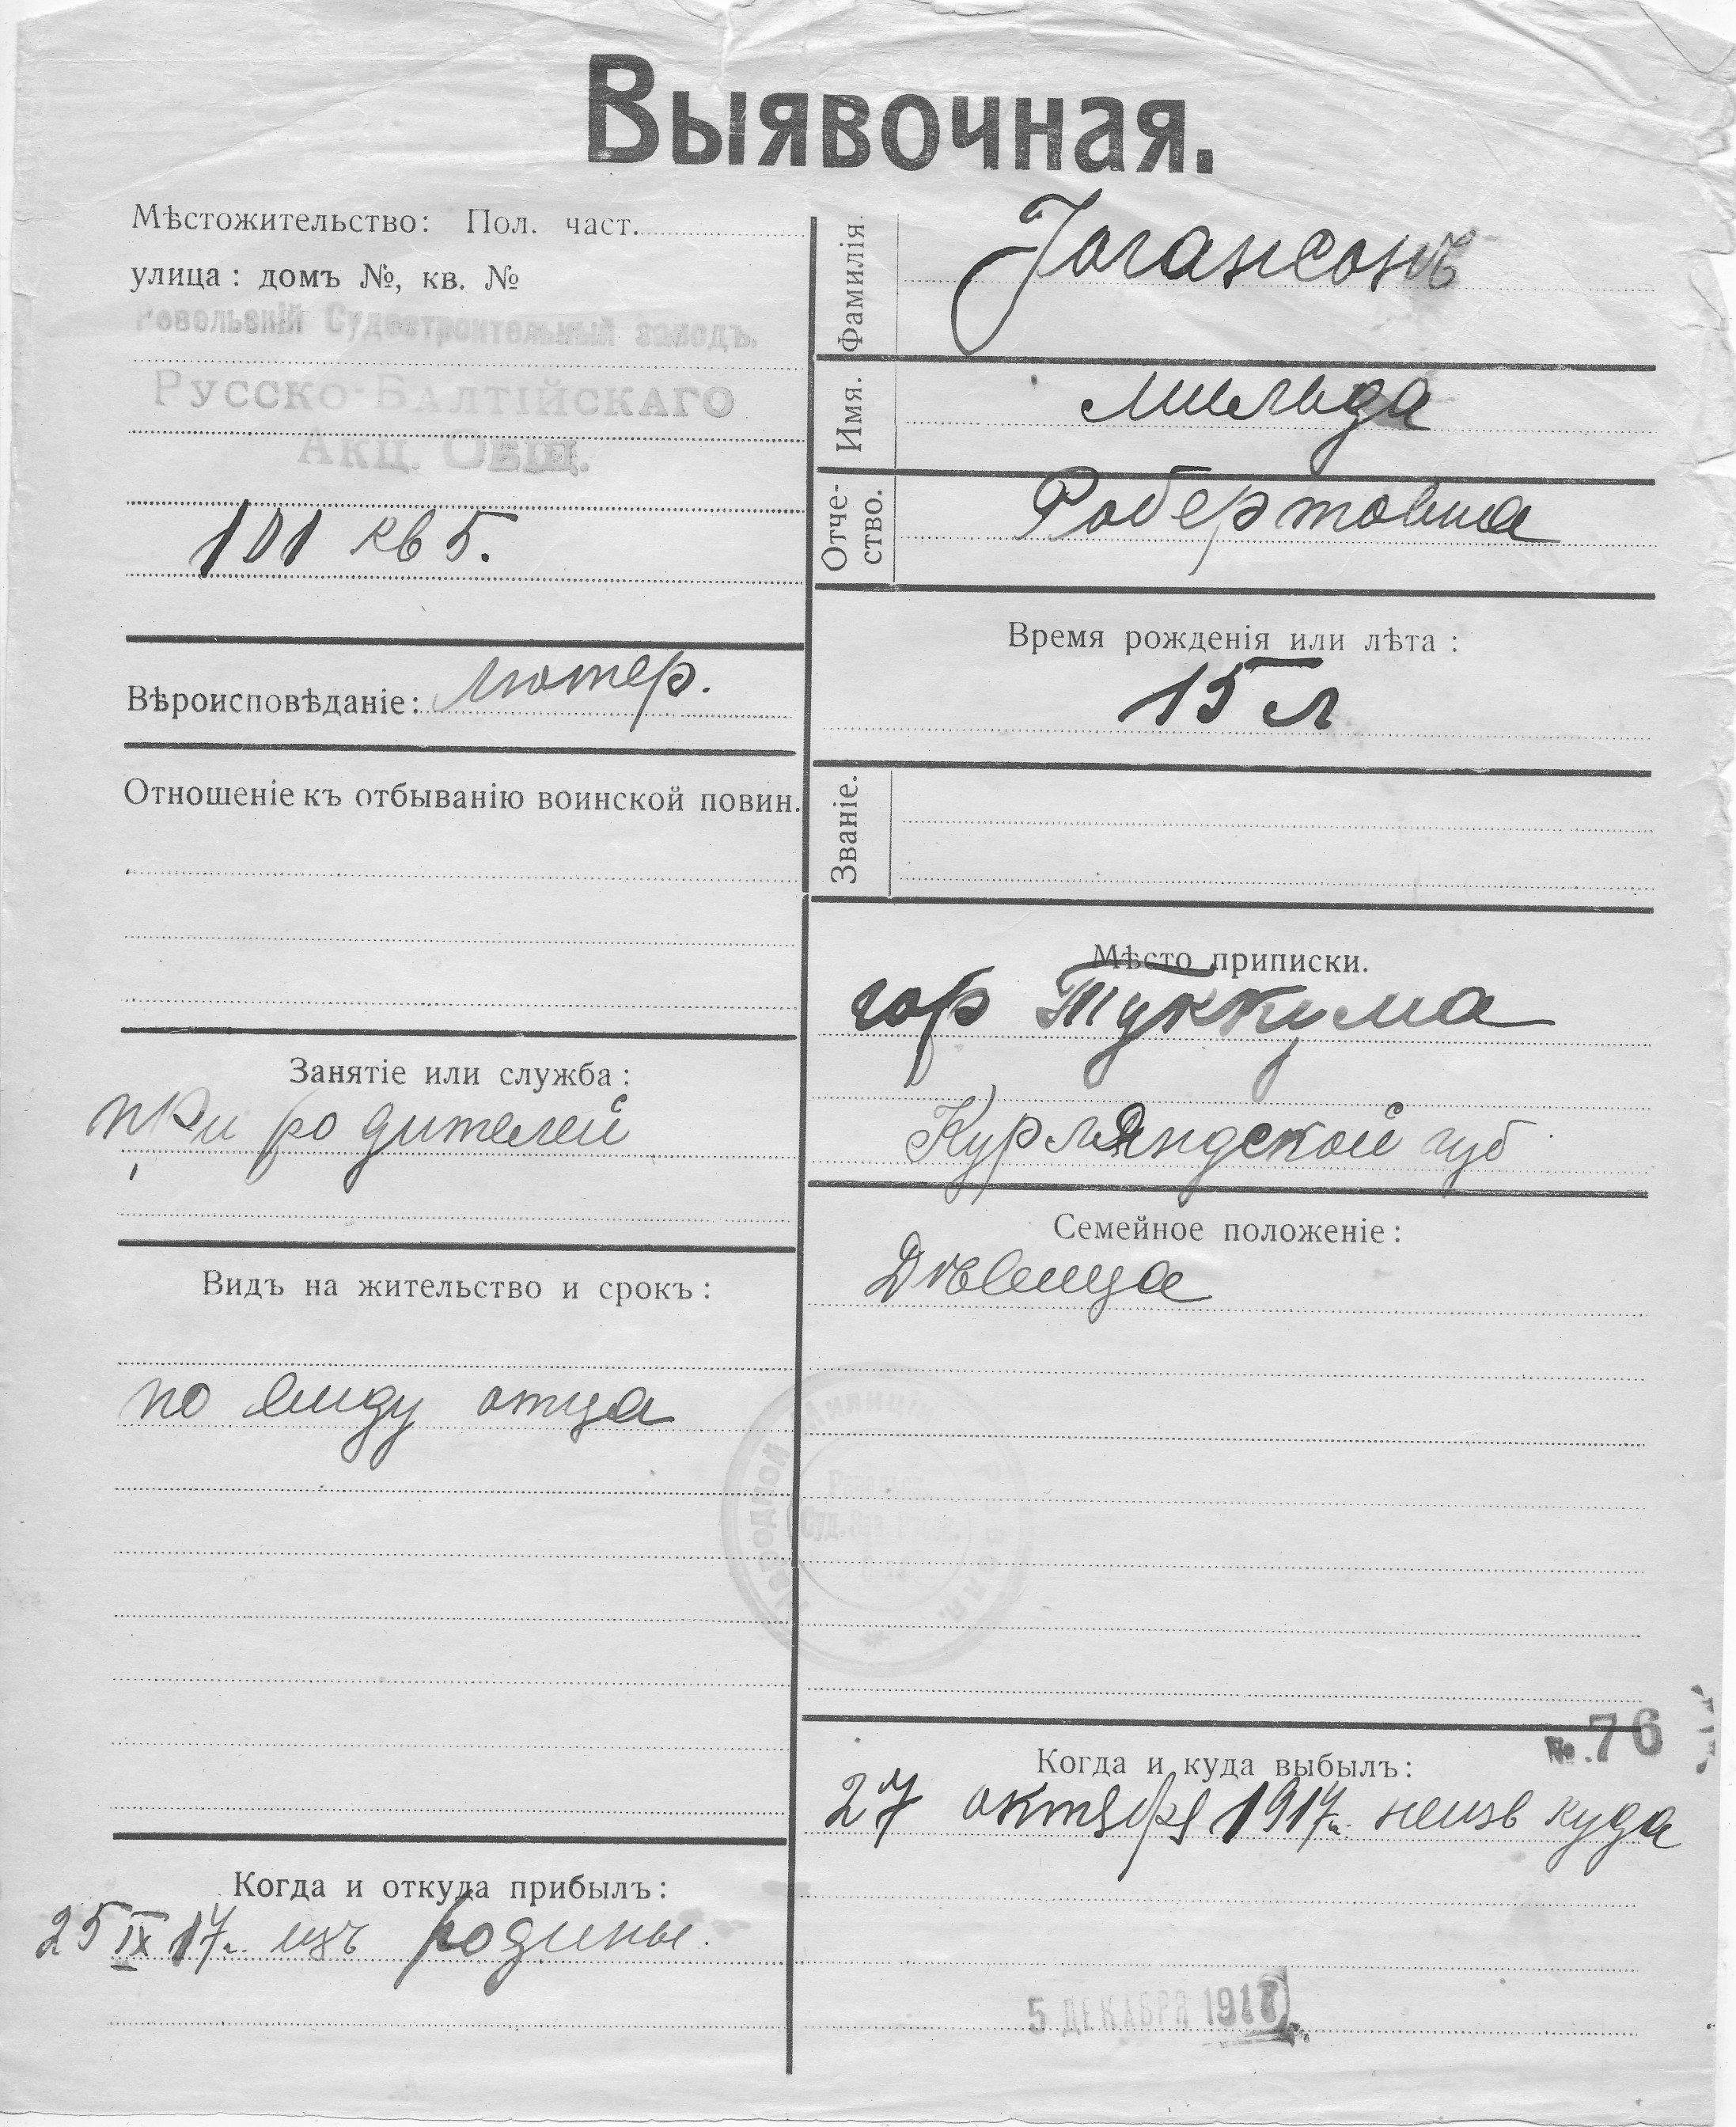 Выявочная.
Мѣстожительство: Пол. част.
улица: домъ №, кв. №
Ревельскій Судостроительный заводъ.
Русско-Балтійскаго
Акц. Общ.
101 кв 5.
Вѣроисповѣданіе: лютер.
Отношеніе къ отбыванію воинской повин.
Занятіе или служба:
при родителей
Видъ на жительство и срокъ:
по виду отца
Когда и откуда прибылъ:
25 IX 17г. изъ родины.
Фамилія. Іогансонъ
Имя. Мильда
Отче-
ство. Робертовна
Время рожденія или лѣта:
15 л
Званіе.
Мѣсто приписки.
гор Туккума
Курляндской губ
Семейное положеніе:
Дѣвица
Народной Милиціи
Ревеля.
Суд. Зав.
№. 76
Когда и куда выбылъ:
27 октября 1917г. неизв куда
5 ДЕКАБРЯ 1917